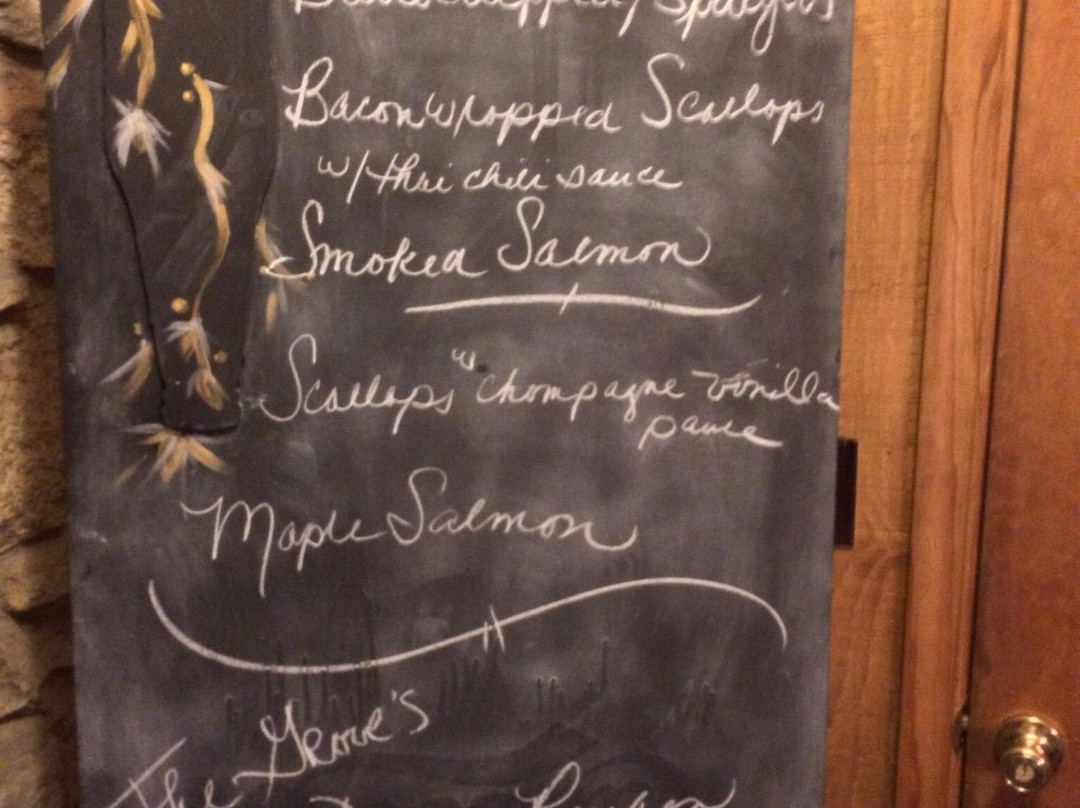 Bacon Wrapped Scallops
w/ thai chili sauce
Smoked Salmon
Scallops w champagne vanilla
sauce
Maple Salmon
The Grove's